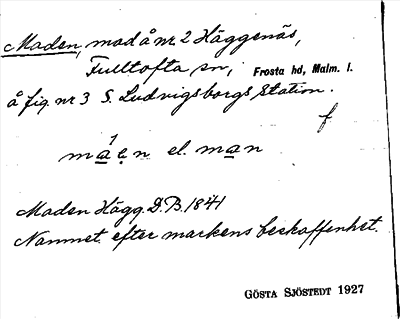 Maden, mad å nr 2 Häggenäs,
Fulltofta sn, Frosta hd, Malm. l.
å fig. nr 3 S. Ludvigsborgs station.
f
maen el. man
Maden Hägg. D.B. 1841
Namnet efter markens beskaffenhet.
GÖSTA SJÖSTEDT 1927